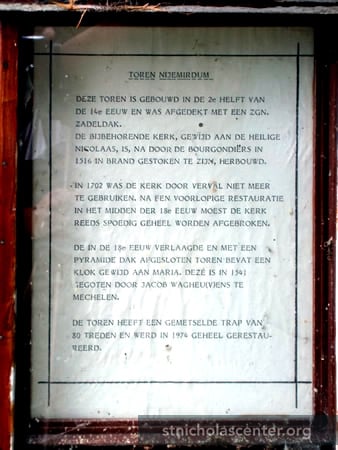 TOREN NIJEMIRDUM
DEZE TOREN IS GEBOUWD IN DE 2e HELFT VAN
DE 14e EEUW EN WAS AFGEDEKT MET EEN ZGN.
ZADELDAK.
DE BIJBEHORENDE KERK, GEWIJD AAN DE HEILIGE
NICOLAAS, IS, NA DOOR DE BOURGONDIËRS IN
1516 IN BRAND GESTOKEN TE ZIJN, HERBOUWD.
IN 1702 WAS DE KERK DOOR VERVAL NIET MEER
TE GEBRUIKEN. NA EEN VOORLOPIGE RESTAURATIE
IN HET MIDDEN DER 18e EEUW MOEST DE KERK
REEDS SPOEDIG GEHEEL WORDEN AFGEBROKEN.
DE IN DE 18e EEUW VERLAAGDE EN MET EEN
PYRAMIDE DAK AFGESLOTEN TOREN BEVAT EEN
KLOK GEWIJD AAN MARIA. DEZE IS IN 1541
GEGOTEN DOOR JACOB WAGHEUIVENS TE
MECHELEN.
DE TOREN HEEFT EEN GEMETSELDE TRAP VAN
80 TREDEN EN WERD IN 1974 GEHEEL GERESTAU-
REERD.
stnicholascenter.org